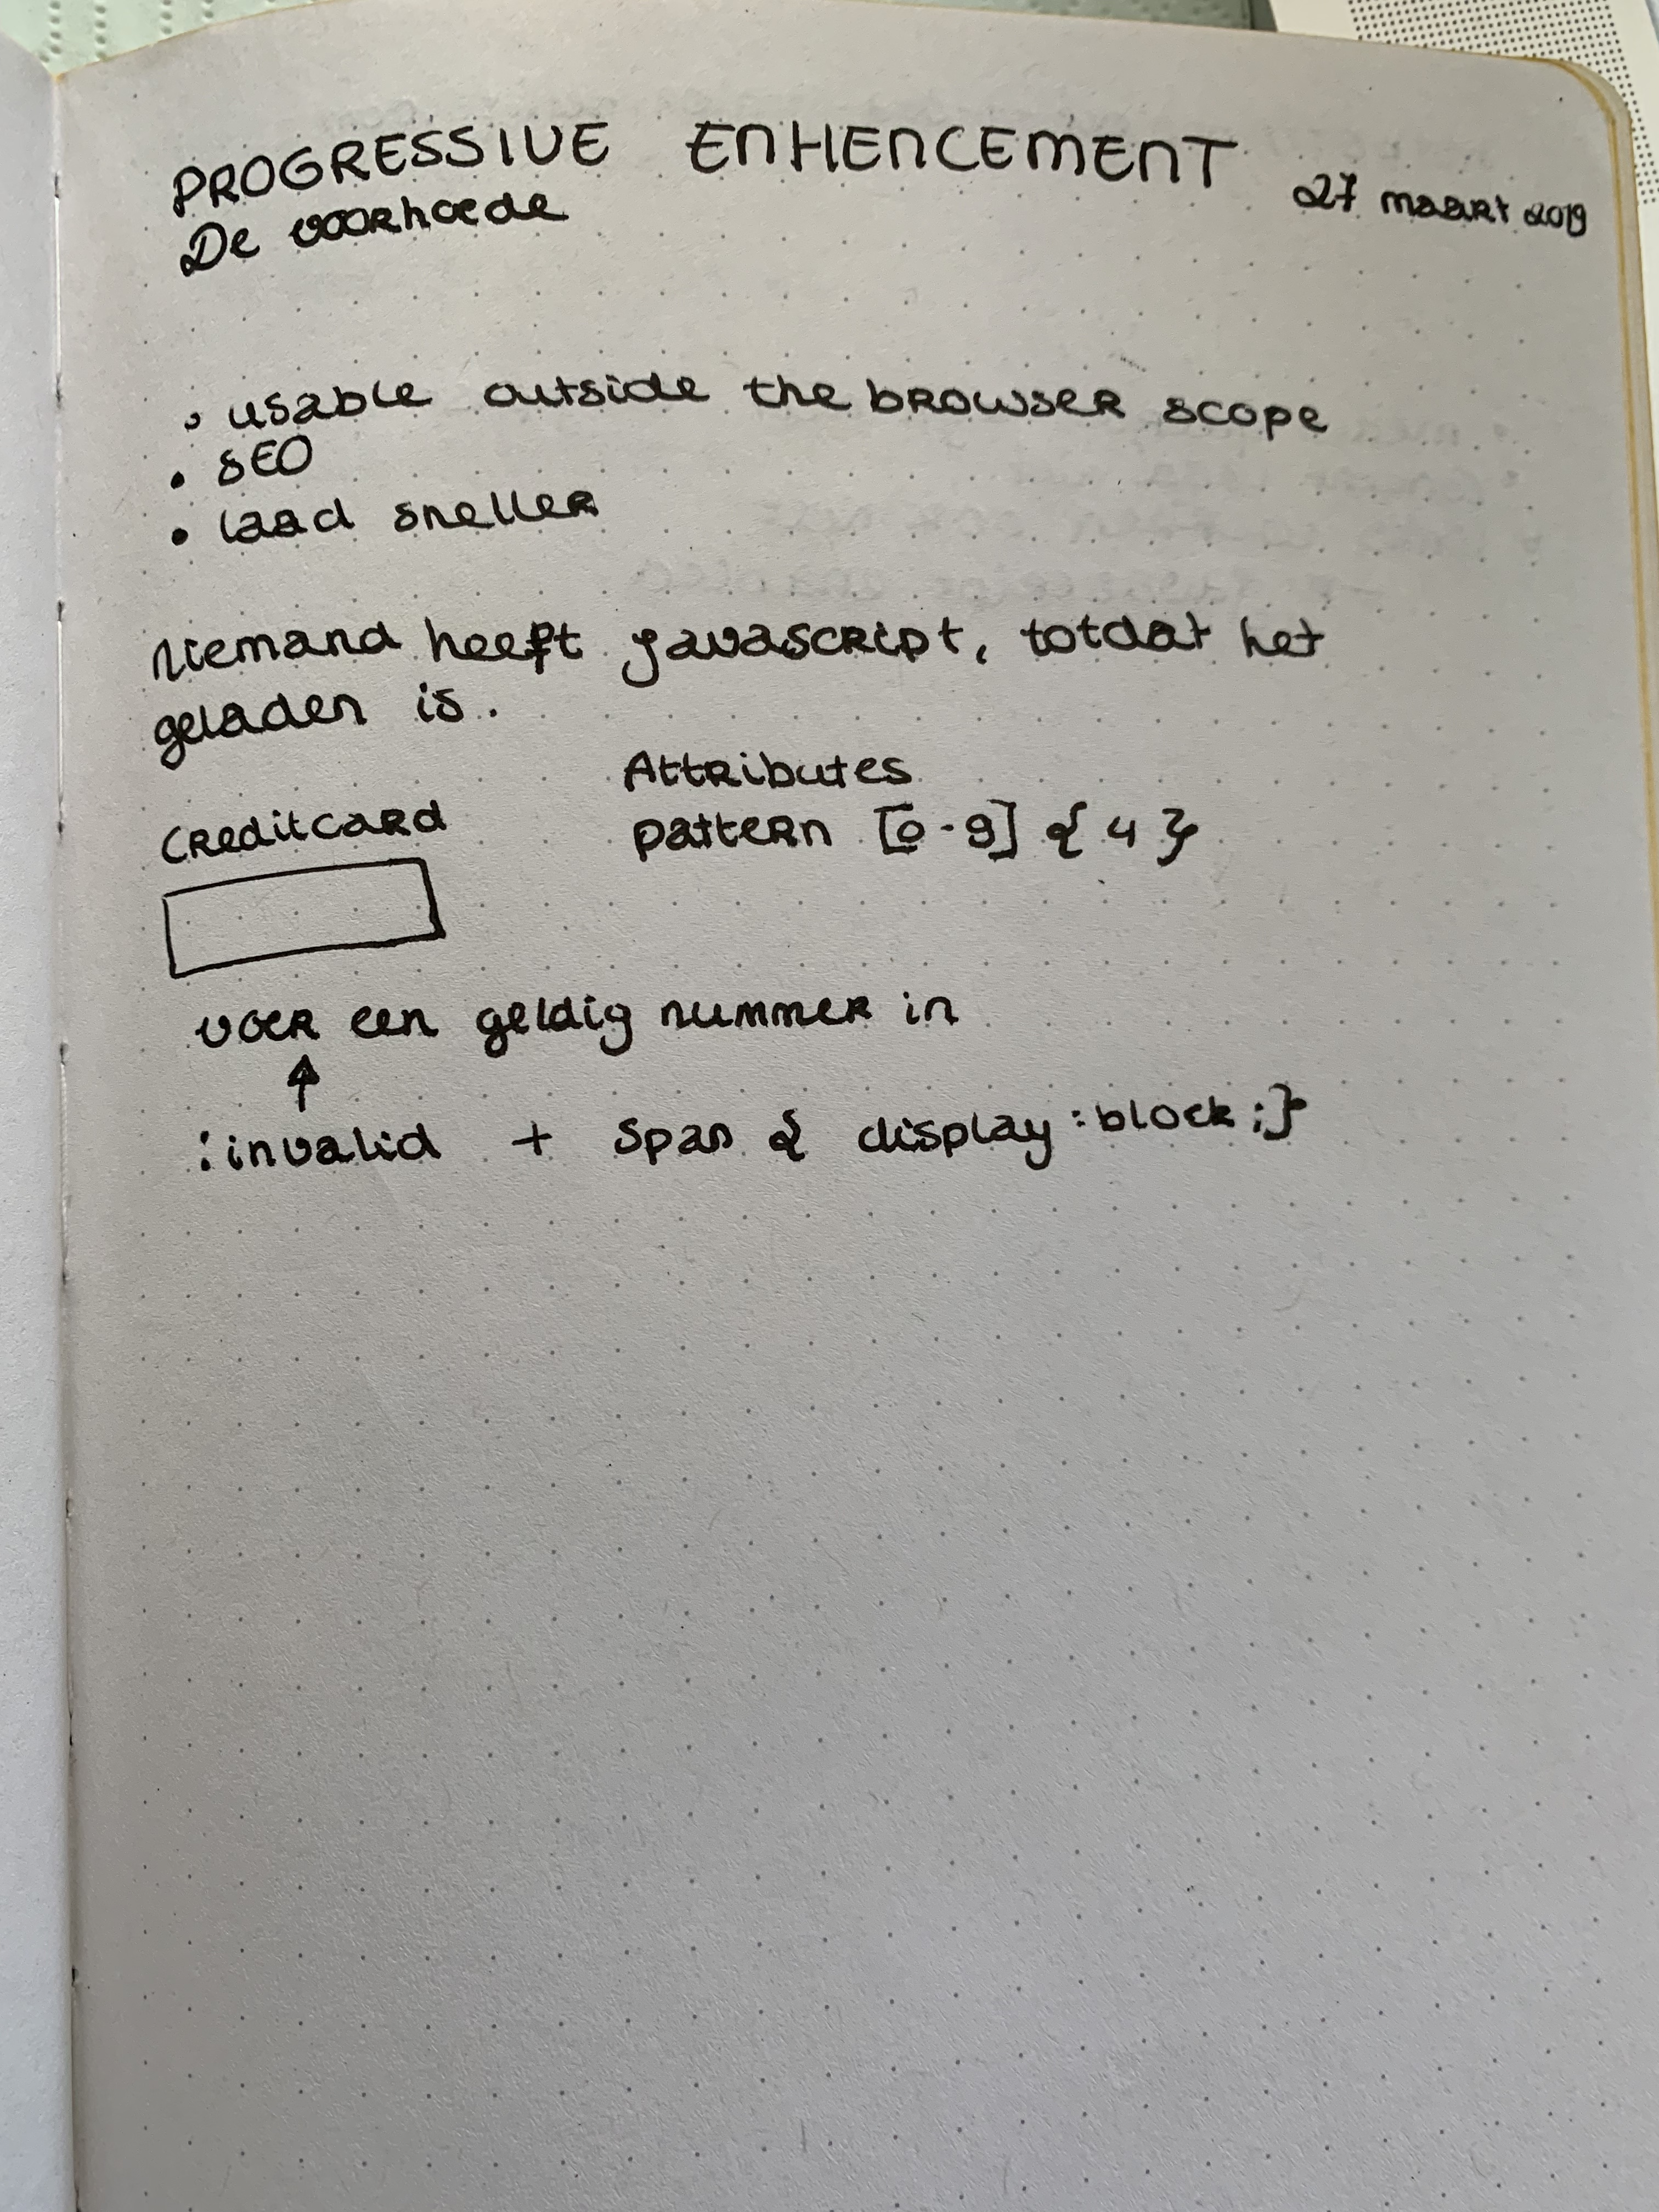 PROGRESSIVE ENHENCEMENT
De voorhoede
27 maart 2019
• usable outside the browser scope
• SEO
• laad sneller
Niemand heeft javascript, totdat het
geladen is.
Attributes
Creditcard
pattern [0-9] {4}
voer een geldig nummer in
↑
:invalid + span { display:block;}